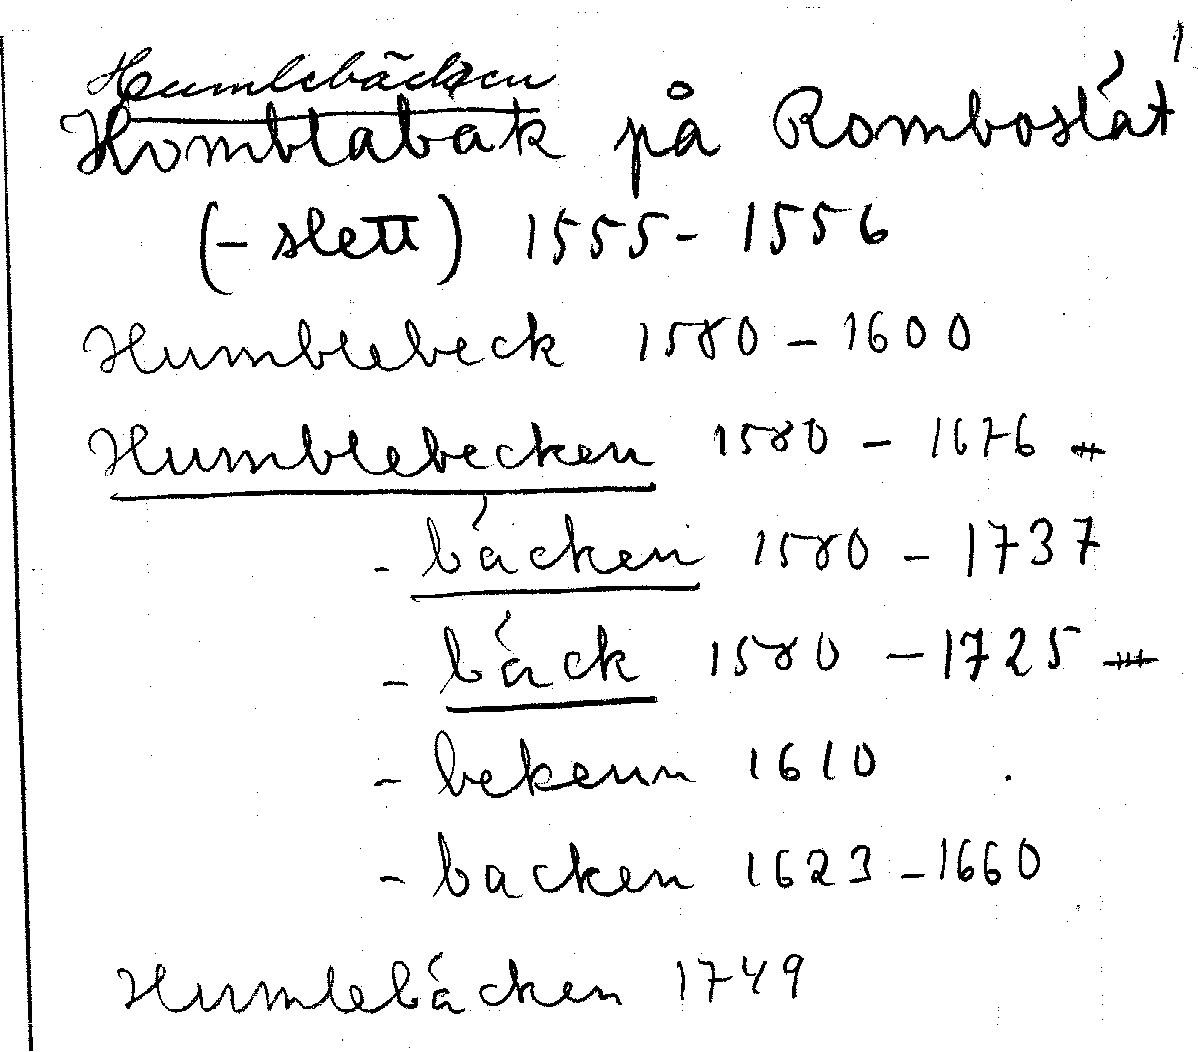 1
Humlebäcken
Homblabäk på Romboslät
(- slett) 1555 - 1556
Humblebeck 1580 - 1600
Humblebecken 1580 - 1676
- bäcken 1580 - 1737
- bäck 1580 - 1725
- bekenn 1610
- backen 1623 - 1660
Humlebäcken 1749